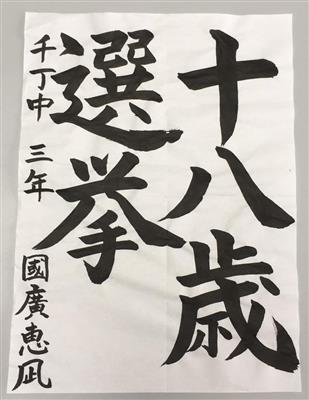 十八歳
選挙
千丁中 三年 國廣恵凪